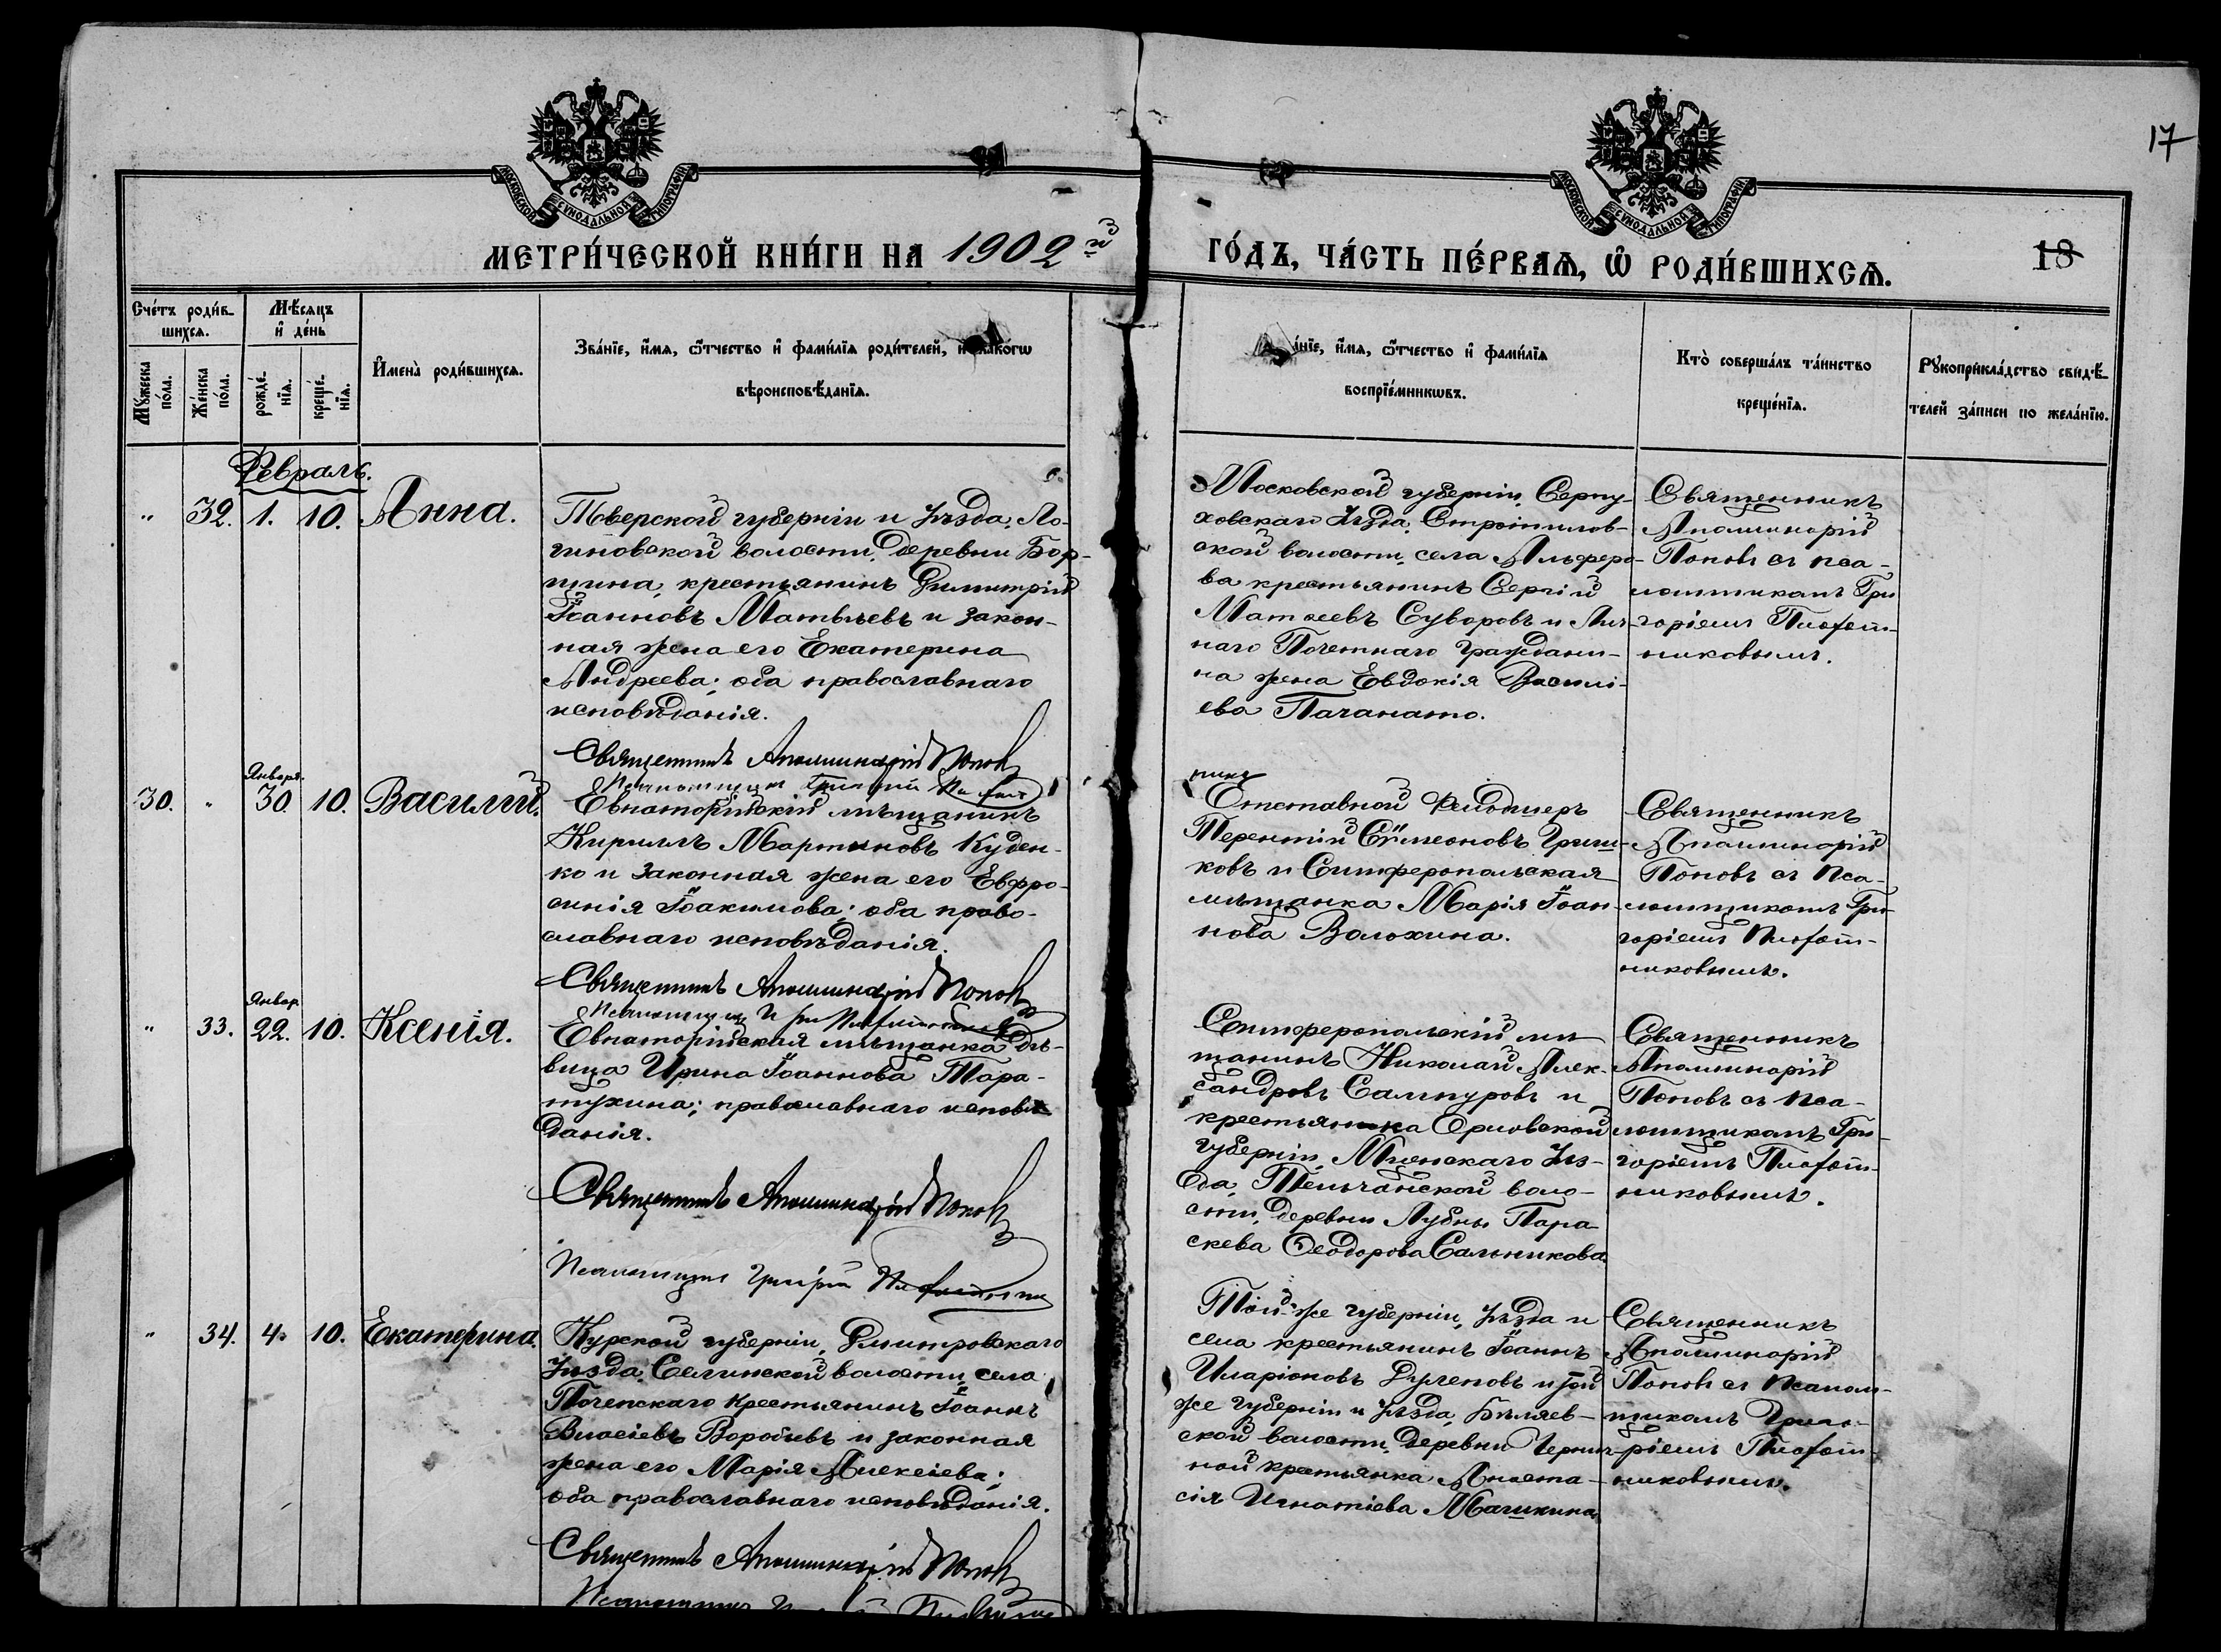 17
МОСКОВСКОЙ СѴНОДАЛЬНОЙ ТИПОГРАФІИ
МОСКОВСКОЙ СѴНОДАЛЬНОЙ ТИПОГРАФІИ
МЕТРИ́ЧЕСКОЙ КНИ́ГИ НА 1902й
ГО́ДЪ, ЧА́СТЬ ПЕ́РВАѦ, Ѡ҆ РОДИ́ВШИХСѦ.
18
Сче́тъ роди́в-
шихсѧ.
Мѣ́сѧцъ
и҆ де́нь
Мꙋ́жеска
по́ла.
Же́нска
по́ла.
рожде́-
нїѧ.
креще́-
нїѧ.
И҆мена̀ роди́вшихсѧ.
Зва́нїе, и҆́мѧ, ѻ҆́тчество и҆ фами́лїѧ роди́телей, и҆ како́гѡ
вѣроисповѣ́данїѧ.
а́нїе, и҆́мѧ, ѻ҆́тчество и҆ фами́лїѧ
воспрїе́мникѡвъ.
Кто̀ соверша́лъ та́инство
креще́нїѧ.
Рꙋкоприкла́дство свидѣ́-
телей за́писи по жела́нїю.
Февраль.
" 32. 1. 10. Анна.
Тверской губерніи и уѣзда, Ло-
гиновской волости, деревни Бор-
щина, крестьянинъ Димитрій
Іоанновъ Матвѣевъ и закон-
ная жена его Екатерина
Андреева; оба православнаго
исповѣданія.
Священникъ Аполлинарій Поповъ
Псаломщикъ Григорій
Московской губерніи, Серпу-
ховскаго уѣзда,
ской волости, села Алферо-
ва крестьянинъ Сергій
Матѳеевъ Суворовъ и Лич-
наго Почетнаго Граждани-
на жена Евдокія Василі-
ева Пачанато.
Священникъ
Аполлинарій
Поповъ съ пса-
ломщикомъ Гри
горіемъ Плоѳот-
никовымъ.
30. " Января. 30 10. Василій.
Евпаторійскій мѣщанинъ
Кириллъ Мартиновъ Куцен-
ко и законная жена его Евфро-
синія Іоакимова; оба право-
славнаго исповѣданія.
Священникъ Аполлинарій Поповъ
Псаломщикъ
Отставной Фельдшеръ
Терентій Сѷмеоновъ Гриш-
ковъ и Симферопольская
мѣщанка Марія Іоан-
нова Волохина.
Священникъ
Аполлинарій
Поповъ съ пса-
ломщикомъ Гри-
горіемъ Плоѳот-
никовымъ.
" 33. Январ. 22. 10. Ксенія.
Евпаторійская мѣщанка дѣ-
вица Ирина Іоаннова Тара-
тухина; православнаго исповѣ
данія.
Священникъ Аполлинарій Поповъ
Псаломщикъ Григорій
Симферопольскій мѣ
щанинъ Николай Алек-
сандровъ Сальпуровъ и
крестьянка Орловской
губерніи, Мценскаго уѣз-
да, Тельчанской воло-
сти, деревни Лубны Пара-
скева Ѳеодорова Сальникова.
Священникъ
Аполлинарій
Поповъ съ пса-
ломщикомъ Гри-
горіемъ Плоѳот-
никовымъ.
" 34. 4. 10. Екатерина.
Курской губерніи, Дмитровскаго
уѣзда, Селинской волости, села
Поченскаго крестьянинъ Іоаннъ
Власіевъ Воробьевъ и законная
жена его Марія Алексіева;
оба православнаго исповѣданія.
Священникъ Аполлинарій Поповъ
Псаломщикъ
Той-же губерніи, уѣзда и
села крестьянинъ Іоаннъ
Иларіоновъ Дулеповъ и той
же губерніи и уѣзда, Бѣляев-
ской волости, деревни
ной крестьянка Анаста-
сія Игнатіева Машкина
Священникъ
Аполлинарій
Поповъ съ псалом-
щикомъ Григо-
ріемъ Плоѳот-
никовымъ.